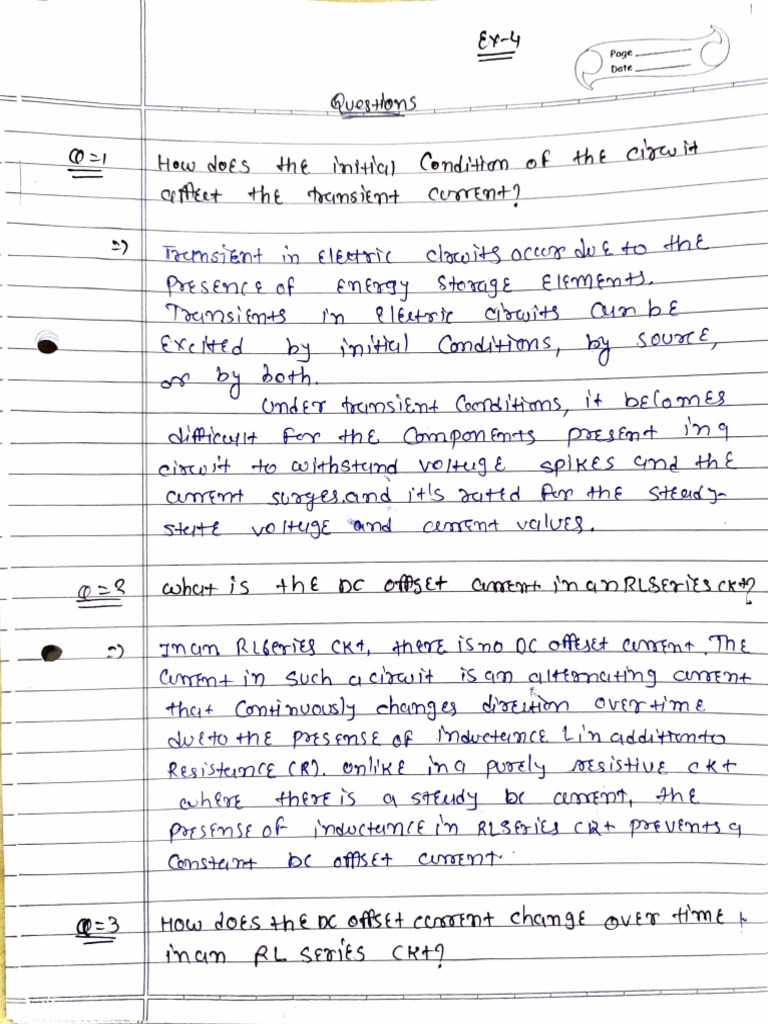 Ex-4
Page
Date
Questions
Q=1 How does the initial Condition of the circuit
affect the transient current?
=) Transient in electric circuits occur due to the
presence of energy storage elements.
Transients in electric circuits can be
excited by initial Conditions, by source,
or by both.
Under transient Conditions, it becomes
difficult for the Components present in a
circuit to withstand voltage spikes and the
current surges.and it's rated for the steady-
state voltage and current values.
Q=2 What is the DC offset current in an RL Series CKt?
=) In an RL Series CKt, there is no DC offset current. The
Current in such a circuit is an alternating current
that Continuously changes direction over time
due to the presense of inductance L in addition to
Resistance (R). Unlike in a purely resistive ckt
where there is a steady DC current, the
presense of inductance in RL Series CKt prevents a
Constant DC offset current.
Q=3 How does the DC offset current change over time
in an RL series CKt?